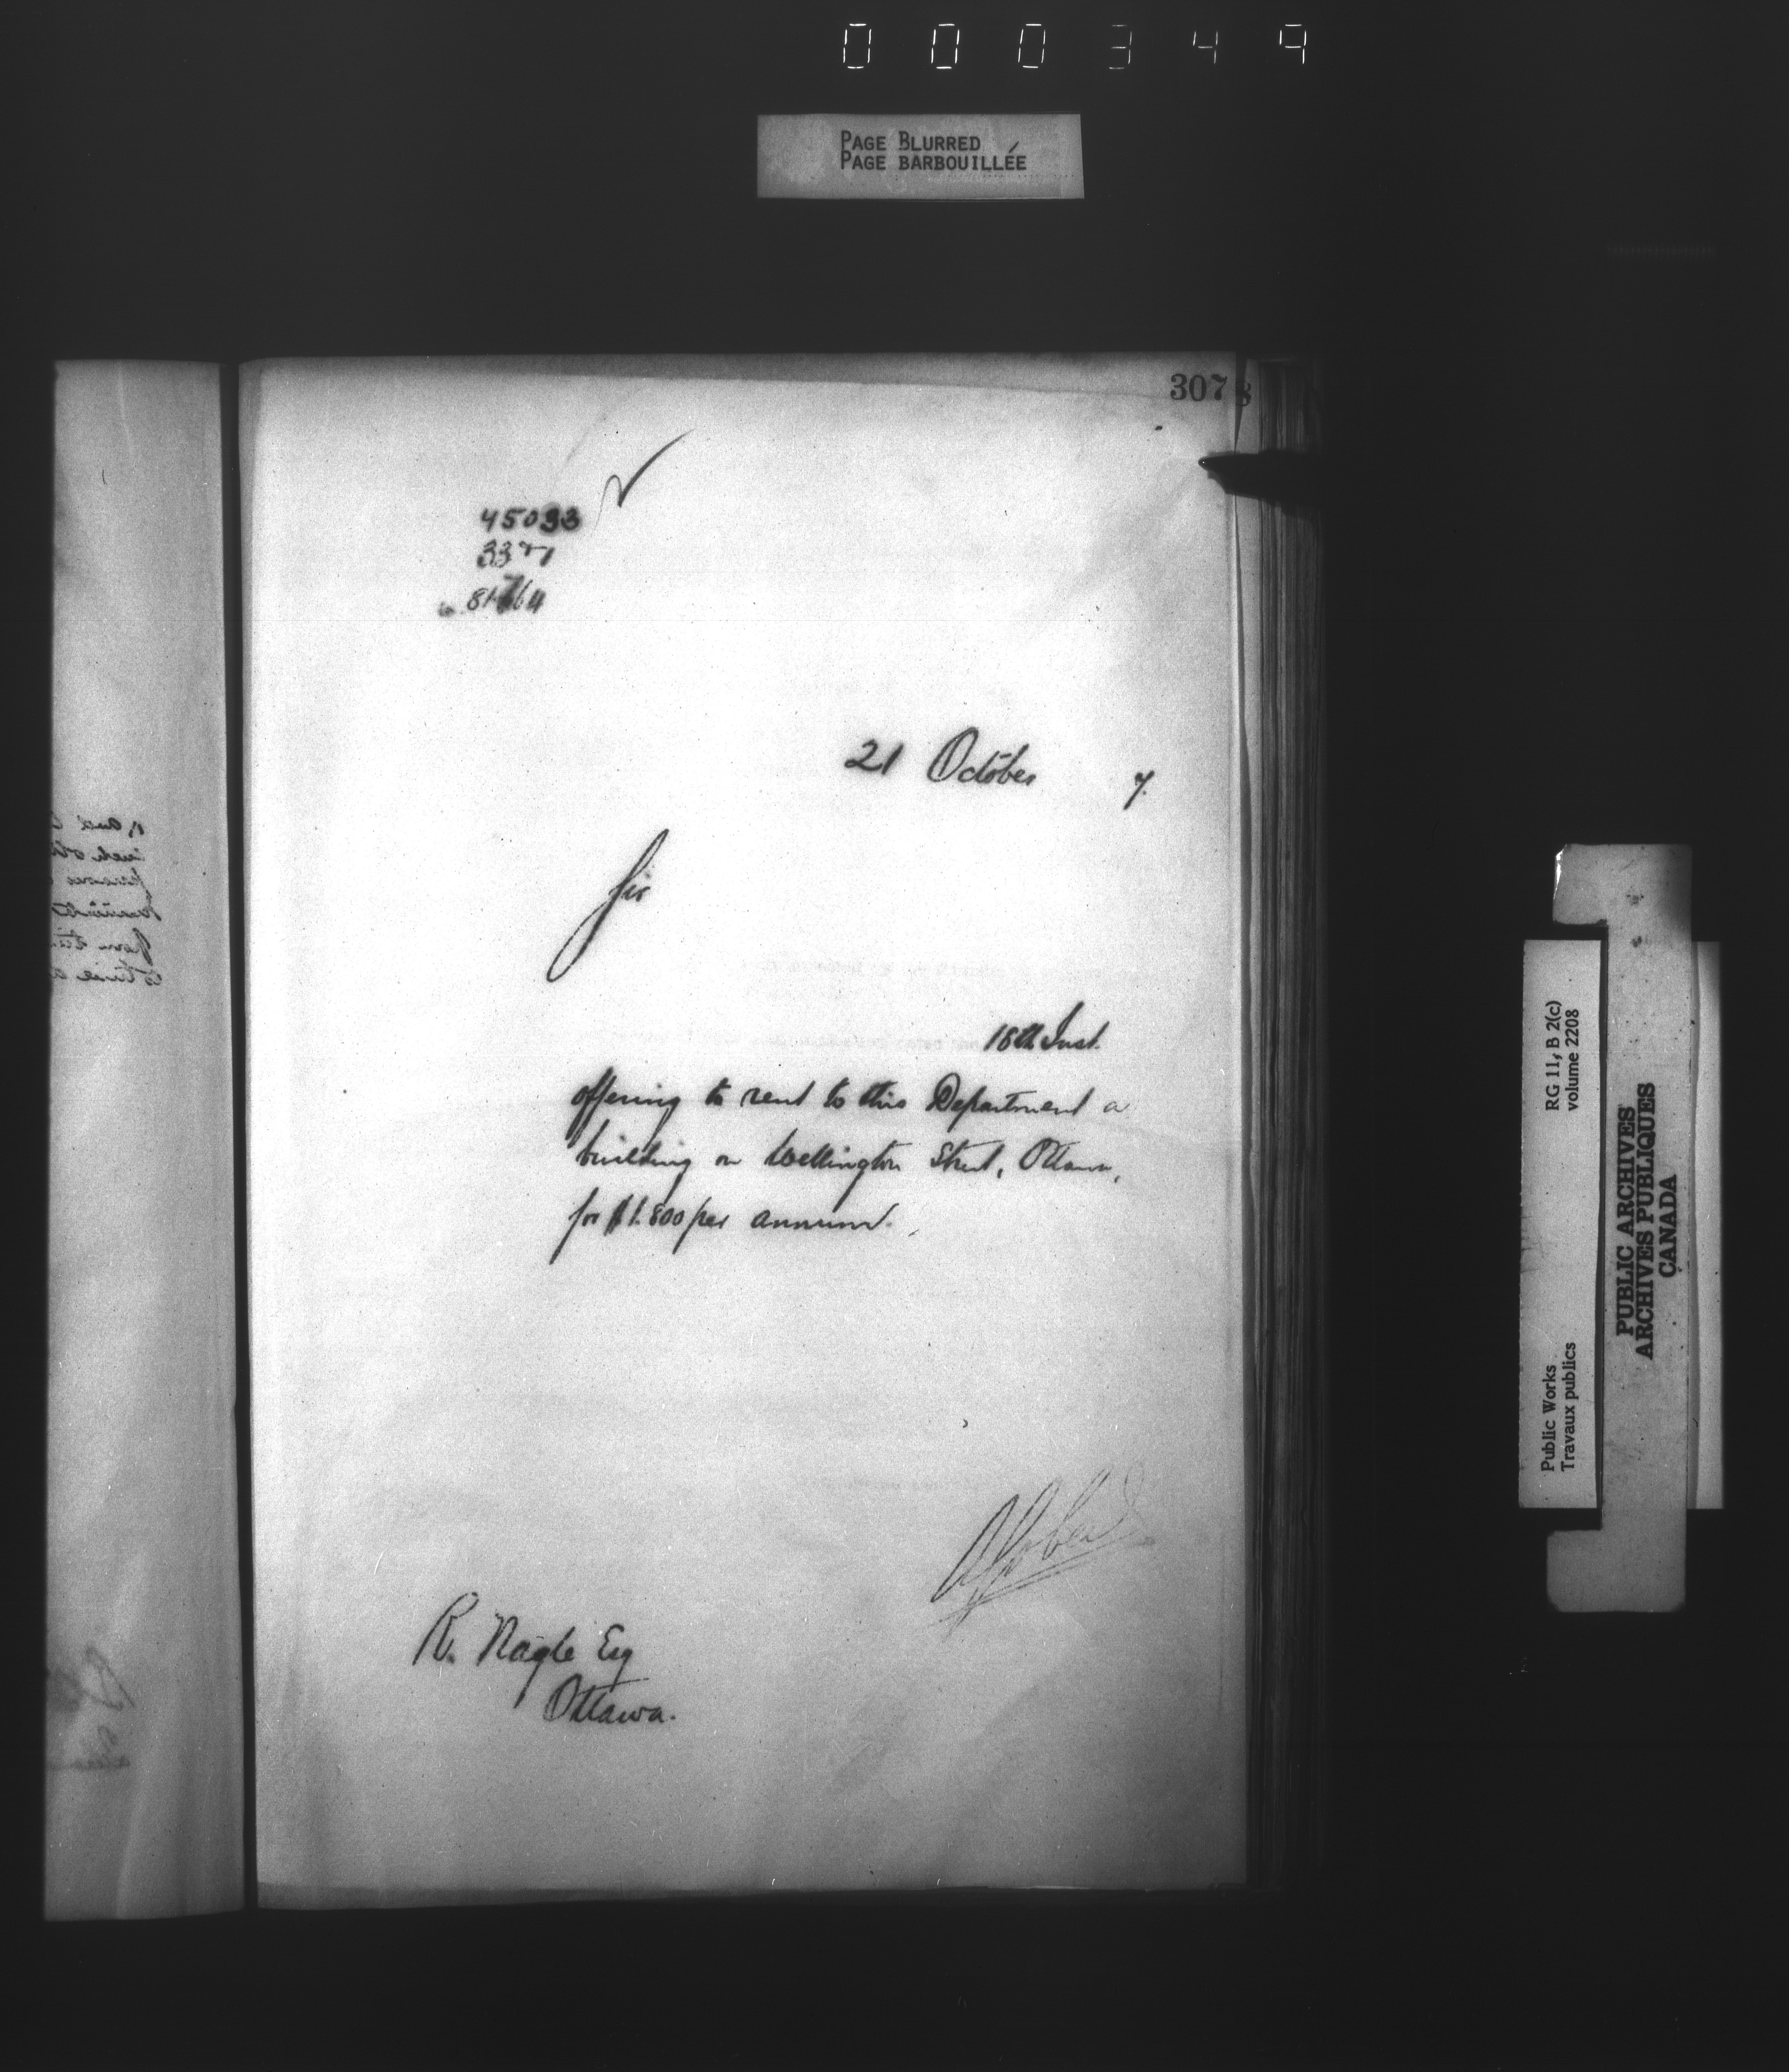 000349
PAGE BLURRED
PAGE BARBOUILLÉE
307
45033
21 October 7.
Sir
18th Inst.
offering to rent to this Department a
building on Wellington Street, Ottawa,
for $1.800 per annum.
R. Nagle Esq
Ottawa.
RG 11, B 2(c)
volume 2208
Public Works
Travaux publics
PUBLIC ARCHIVES
ARCHIVES PUBLIQUES
CANADA